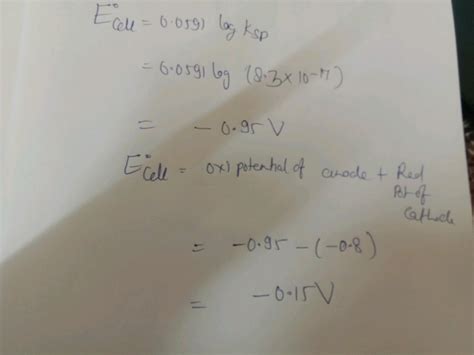 E°Cell = 0.0591 log Ksp
= 0.0591 log (8.3 × 10-17)
= - 0.95 V
E°Cell = oxi potential of anode + Red Pot of Cathode
= -0.95 - (-0.8)
= -0.15V